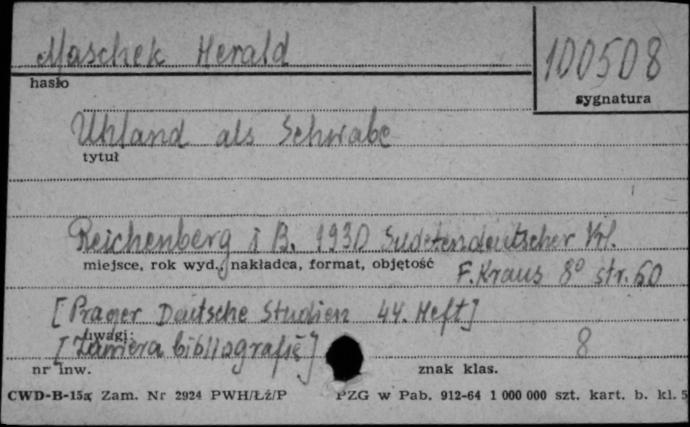 Maschek Herald
100508
hasło
sygnatura
Uhland als Schwabe
tytuł
Reichenberg i B. 1930 Sudetendeutscher Vrl.
miejsce, rok wyd., nakładca, format, objętość
F. Kraus 8° str. 60
[Prager Deutsche Studien 44. Heft]
uwagi:
[Zawiera bibliografię]
8
nr inw.
znak klas.
CWD-B-15a Zam. Nr 2924 PWH/Łż/P PZG w Pab. 912-64 1 000 000 szt. kart. b. kl. 5